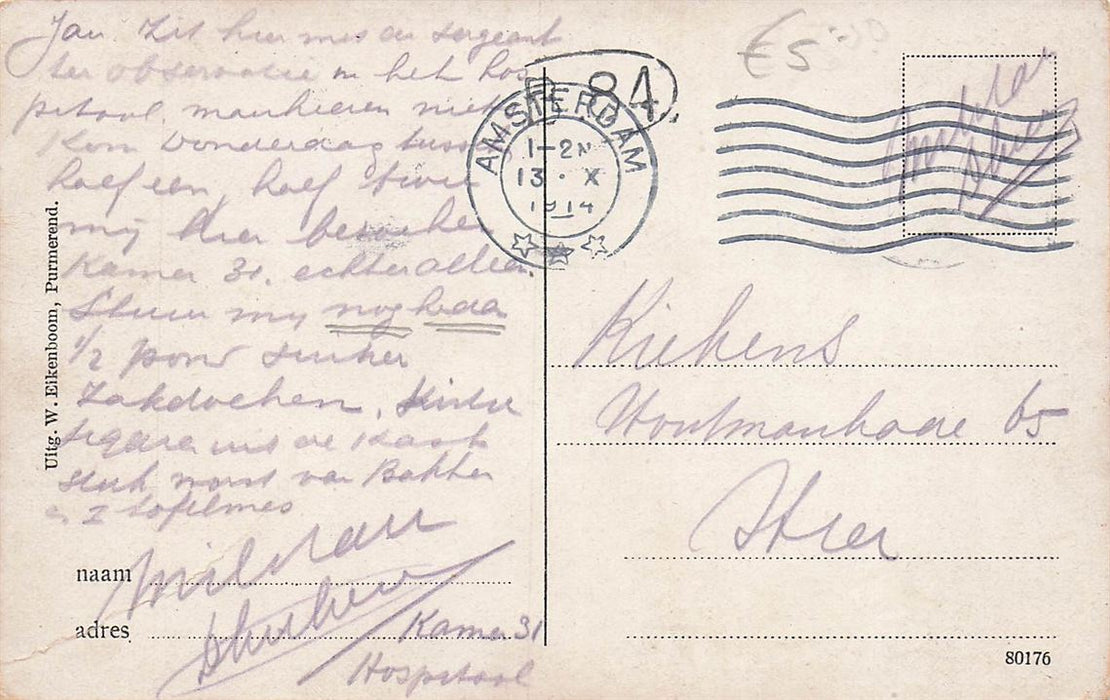 Jan. Zit hier met een sergeant
ter observatie in het hos
pitaal, mankeeren niets
Kom Donderdag tussen
half een, half twee
mij hier bezoeken
Kamer 31. echter alleen.
Stuur mij nog
1/2 pond suiker
Zakdoeken,
sigaren uit de Kast
stuk worst van Bakker
en 1 tafelmes
naam Militair
adres
Kamer 31
Hospitaal
Uitg. W. Eikenboom, Purmerend.
P. 84.
AMSTERDAM
1-2N
13 · X
1914
€5
Militair
Kiekens
Houtmankade 65
Hier
80176